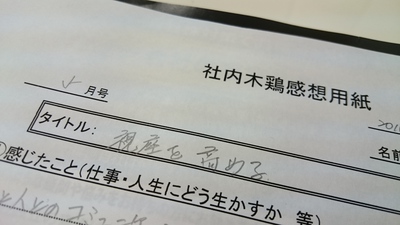 社内木鶏感想用紙
月号
201
タイトル: 視座を高める
名前
①感じたこと(仕事・人生にどう生かすか 等)